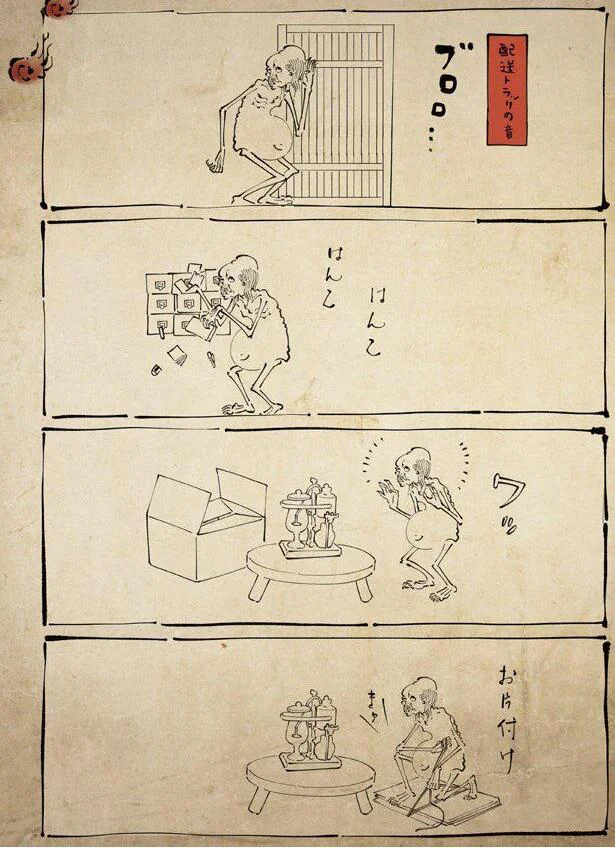 配送トラックの音
ブロロ…
はんこ
はんこ
ワッ
お片付け
きゅ